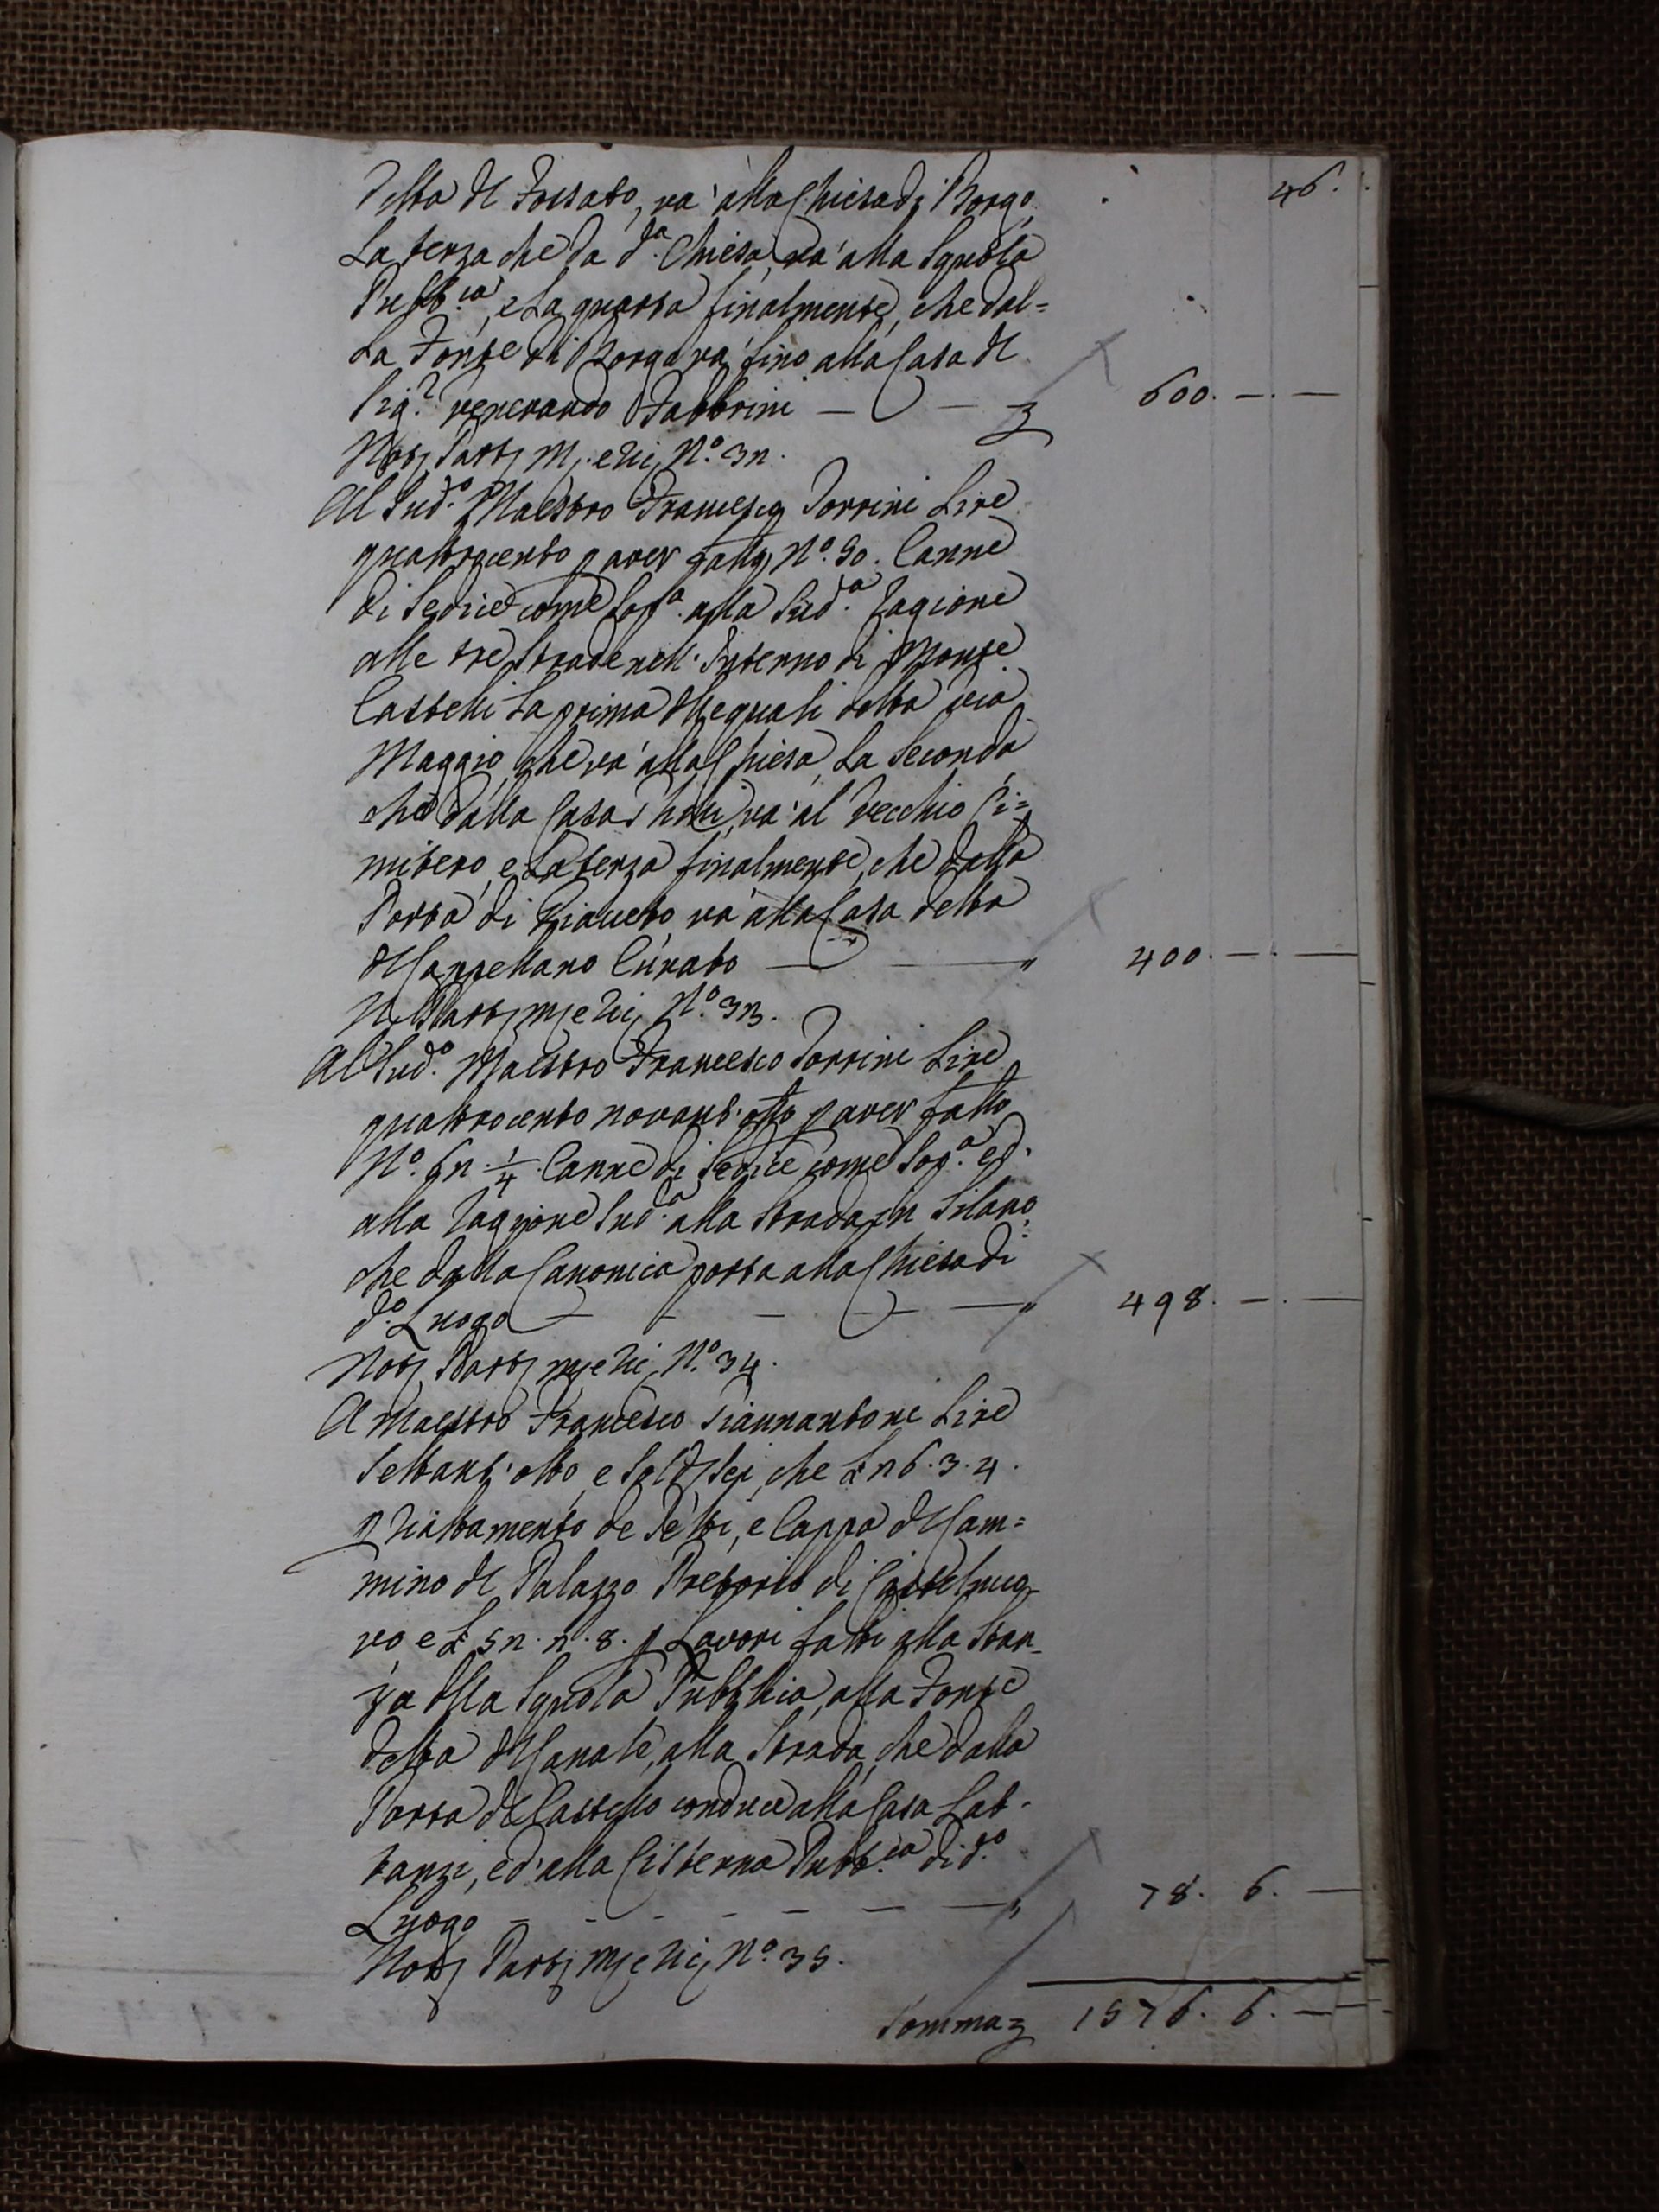 46.
detta del Fossato, va' alla Chiesa di Borgo,
La terza che da d.a Chiesa, va' alla Squola
Pubb.ca, e La quarta finalmente, che dal=
La Fonte di Borgo va' fino alla Casa del
Sig.r Venerando Fabbrini — — 600. —. —
N.o 32.
Al Sud.o Maestro Francesco Torrini Lire
quattrocento p aver fatto N.o 50. Canne
di Selcie come Sop.a alla Sud.a Ragione
alle tre Strade nell' Interno di Monte
Castelli La prima delle quali detta via
Maggio, che va' alla Chiesa, La Seconda
che dalla Casa va' al Vecchio Ci=
mitero, e La terza finalmente, che dalla
Porta di va' alla Casa detta
del Cappellano Curato — — 400. —. —
N.o 33.
Al Sud.o Maestro Francesco Torrini Lire
quattrocento novant'otto p aver fatto
N.o 62 1/4. Canne di Selcie come Sop.a ed
alla Ragione Sud.a alla Strada in Silano,
che dalla Canonica porta alla Chiesa di
d.o Luogo — — — — 498. —. —
N.o 34.
A Maestro Francesco Giannantoni Lire
Settant'otto, e Soldi Sei, che £ 26. 3. 4.
p Riattamento de Tetti, e Cappa del Cam=
mino del Palazzo Pretorio di Castelnuo=
vo, e £ 52. 2. 8. p Lavori fatti alla Stan=
za della Squola Pubblica, alla Fonte
detta del Canale, alla Strada, che dalla
Porta del Castello conduce alla Casa Lat=
tanzi, ed alla Cisterna Pubb.ca di d.o
Luogo — — — — — 78. 6. —
N.o 35.
Somma 1576. 6. —